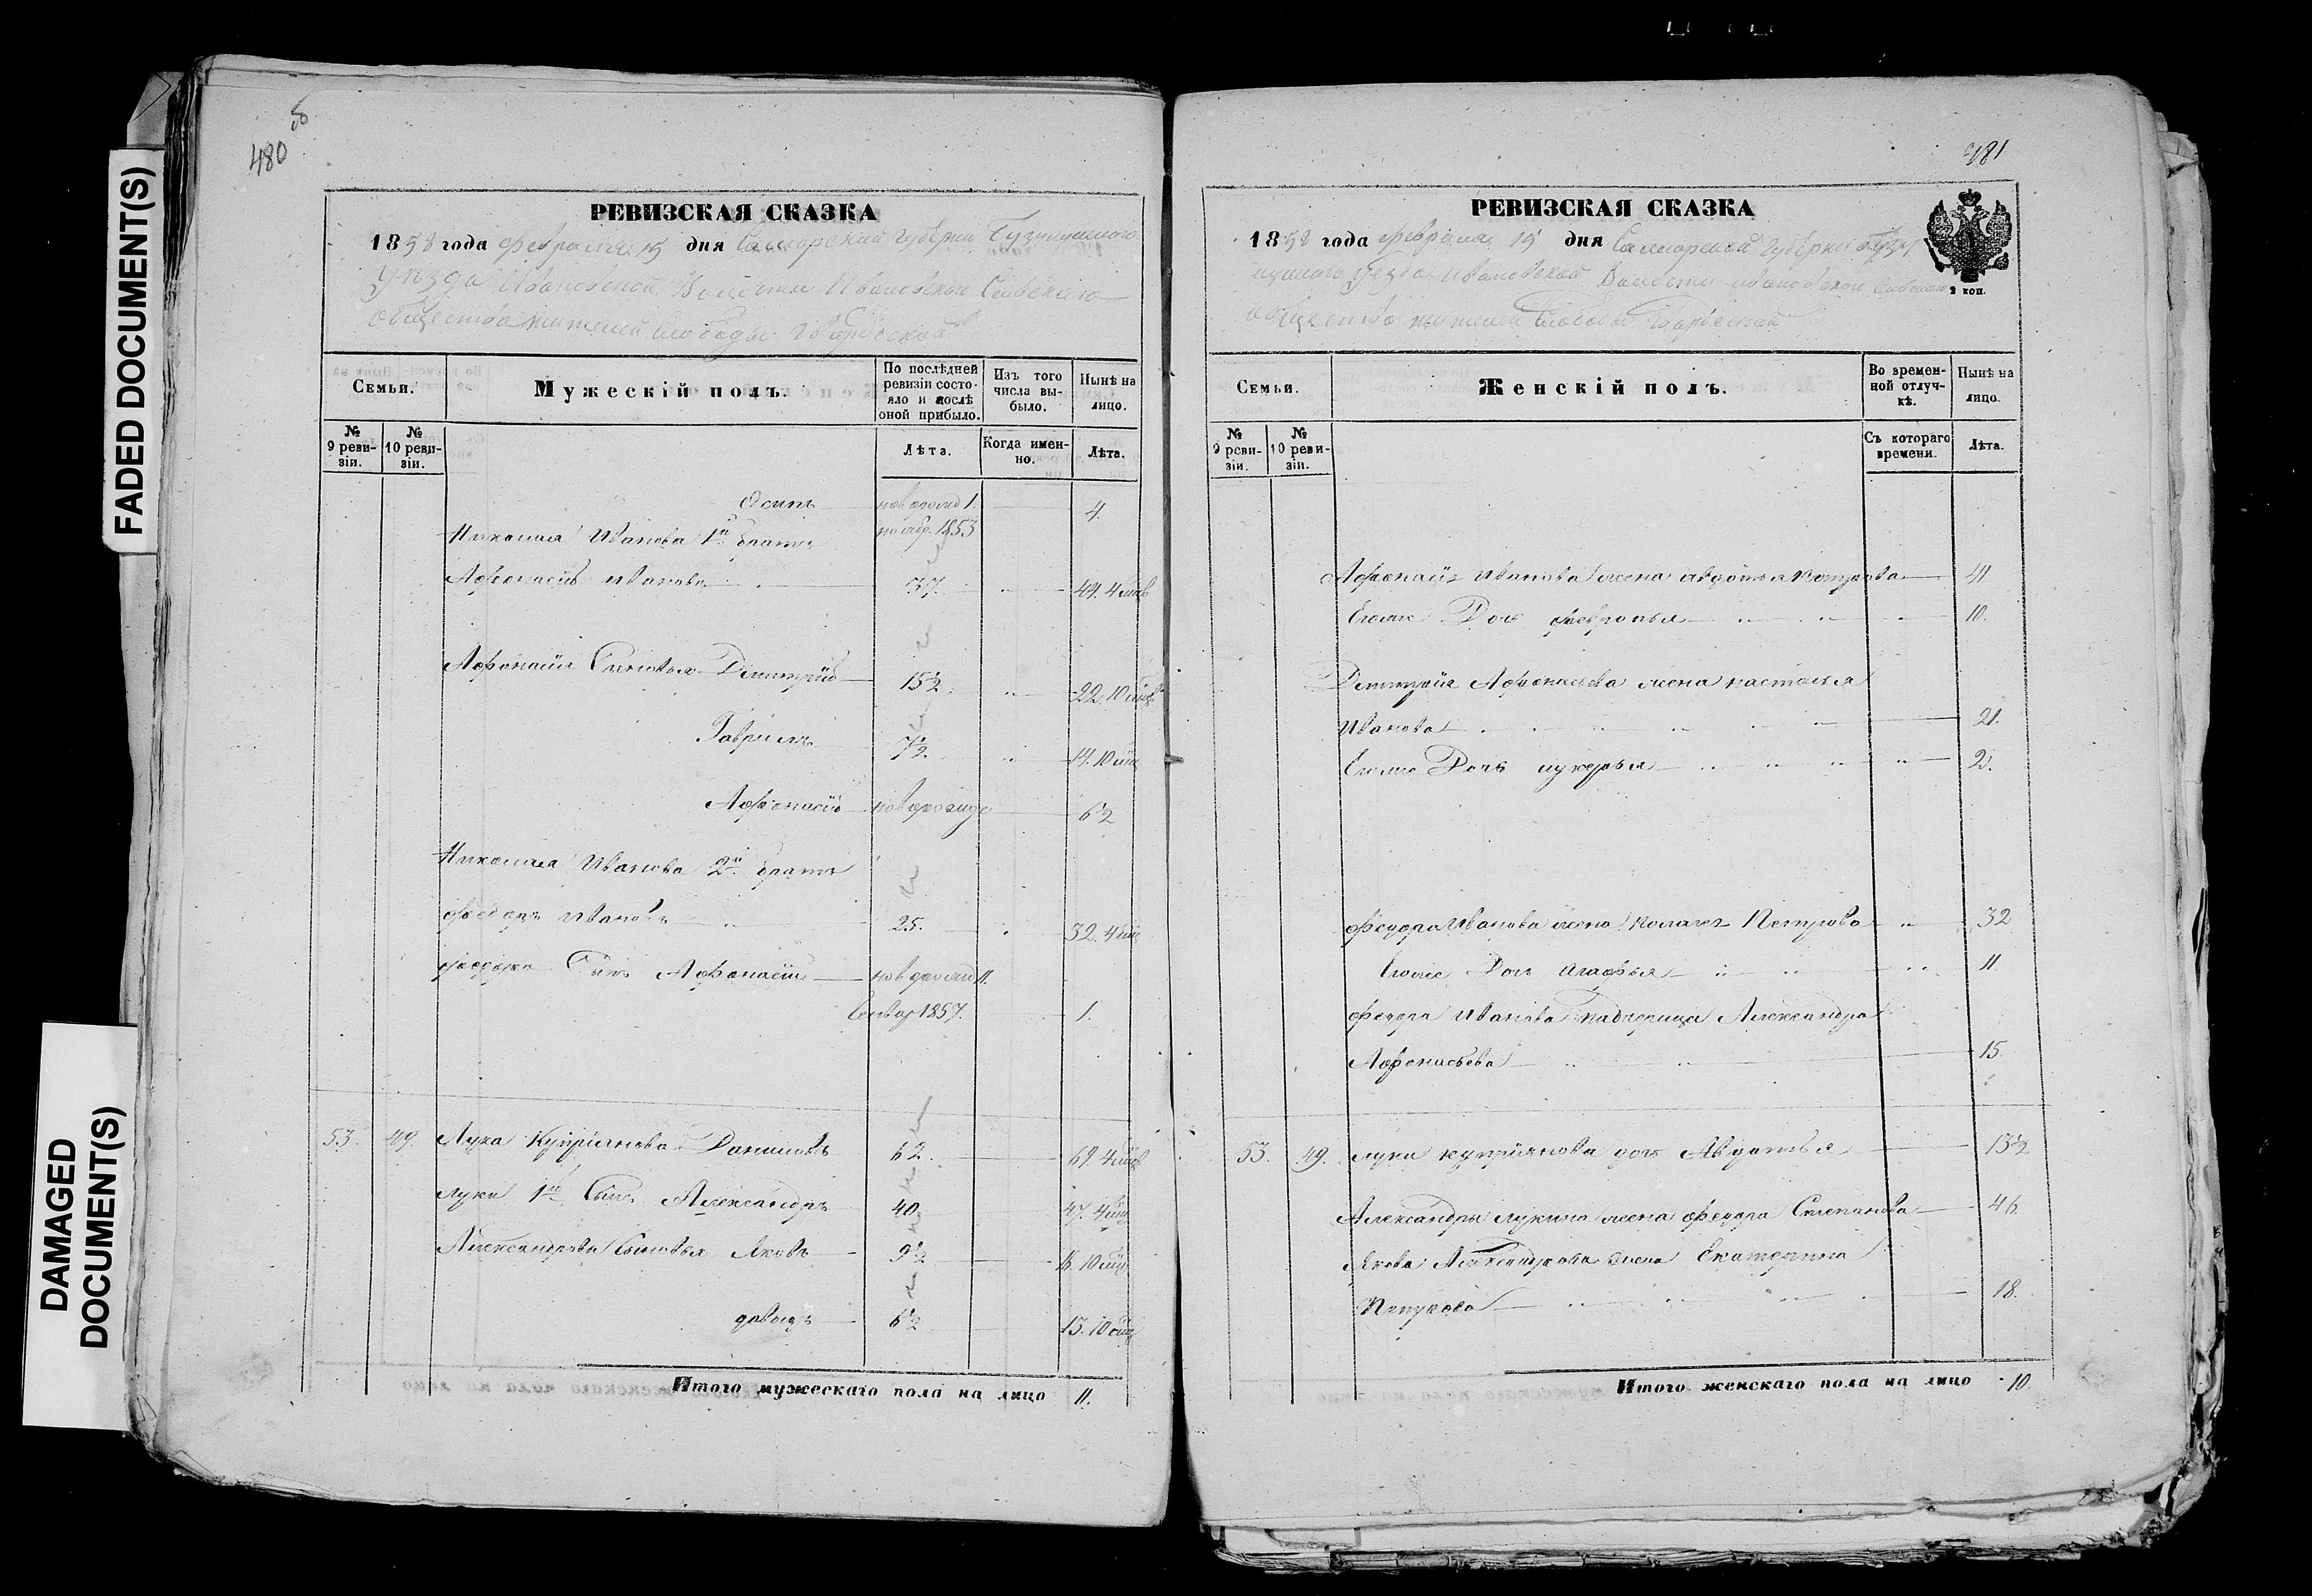 FADED DOCUMENT(S)
DAMAGED
DOCUMENT(S)
480
об
РЕВИЗСКАЯ СКАЗКА
1858 года февраля 15 дня Самарской губернии Бузулукскаго
уезда Ивановской Волости Ивановскаго Сельскаго
общества жителей слободы
Семьи.
Мужескій полъ.
По послѣдней ревизіи состояло и послѣ оной прибыло.
Изъ того числа выбыло.
Нынѣ на лицо.
№ 9 ревизіи.
№ 10 ревизіи.
Лѣта.
Когда именно.
Лѣта.
Осипъ 4
ноябр. 1853
Николая Иванова 1й братъ
Афонасій Ивановъ 37 44. 4 мѣс
Афонасія Сыновья Дмитрій 15½ 22. 10 мѣс
Гаврилъ 7½ 14. 10 мѣс
Афонасій новорожд 6½
Николая Иванова 2й братъ
Федоръ Ивановъ 25. 32. 4 мѣс
Федора Сынъ Афонасій новорожд 11.
Генвар 1857. 1.
53. 49. Лука Куприяновъ Даниловъ 62. 69. 4 мѣс
Луки 1й Сынъ Александръ 40. 47. 4 мѣс
Александрова Сыновья Яковъ 9½ 16. 10 мѣс
давыдъ 6½ 13. 10 мѣс
Итого мужескаго пола на лицо 11.
481
РЕВИЗСКАЯ СКАЗКА
1858 года февраля 15 дня Самарской Губернии Бузу
лукскаго уезда Ивановской Волости Ивановскаго Сельскаго
общества жителей слободы
2 коп.
Семьи.
Женскій полъ.
Во временной отлучкѣ.
Нынѣ на лицо.
№ 9 ревизіи.
№ 10 ревизіи.
Съ котораго времени.
Лѣта.
Афонасія Иванова жена Авдотья Петрова 41
Егоже Дочь февронья 10.
Дмитрія Афонасьева жена настасья
Иванова 21.
Егоже Дочь лукерья 2.
Федора Иванова жена Петрова 32
Егоже Дочь Агафья 11
Федора Иванова падчерица Александра
Афонасьева 15.
53. 49. Луки куприянова дочь Авдотья 13½
Александры лукина жена федора Степанова 46
Якова Александрова жена Екатерина
Петрова 18.
Итого женскаго пола на лицо 10.